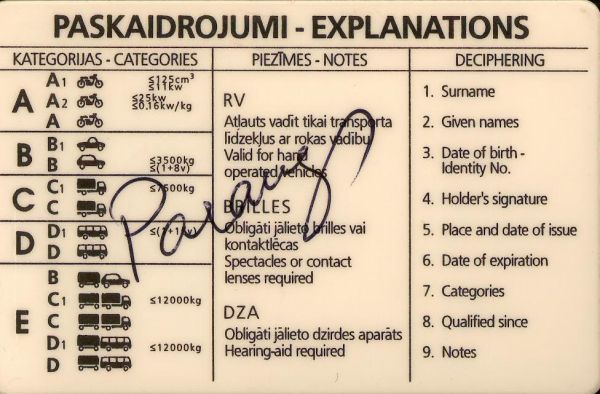 PASKAIDROJUMI - EXPLANATIONS
KATEGORIJAS - CATEGORIES
A
A1 ≤125cm³ ≤11kw
A2 ≤25kw ≤0,16kw/kg
A
B
B1
B ≤3500kg ≤(1+8v)
C
C1 ≤7500kg
C
D
D1
D
E
B
C1 ≤12000kg
C
D1 ≤12000kg
D
PIEZĪMES - NOTES
RV
Atļauts vadīt tikai transporta
līdzekļus ar rokas vadību
Valid for hand
operated vehicles
BRILLES
Obligāti jālieto brilles vai
kontaktlēcas
Spectacles or contact
lenses required
DZA
Obligāti jālieto dzirdes aparāts
Hearing-aid required
DECIPHERING
1. Surname
2. Given names
3. Date of birth -
Identity No.
4. Holder's signature
5. Place and date of issue
6. Date of expiration
7. Categories
8. Qualified since
9. Notes